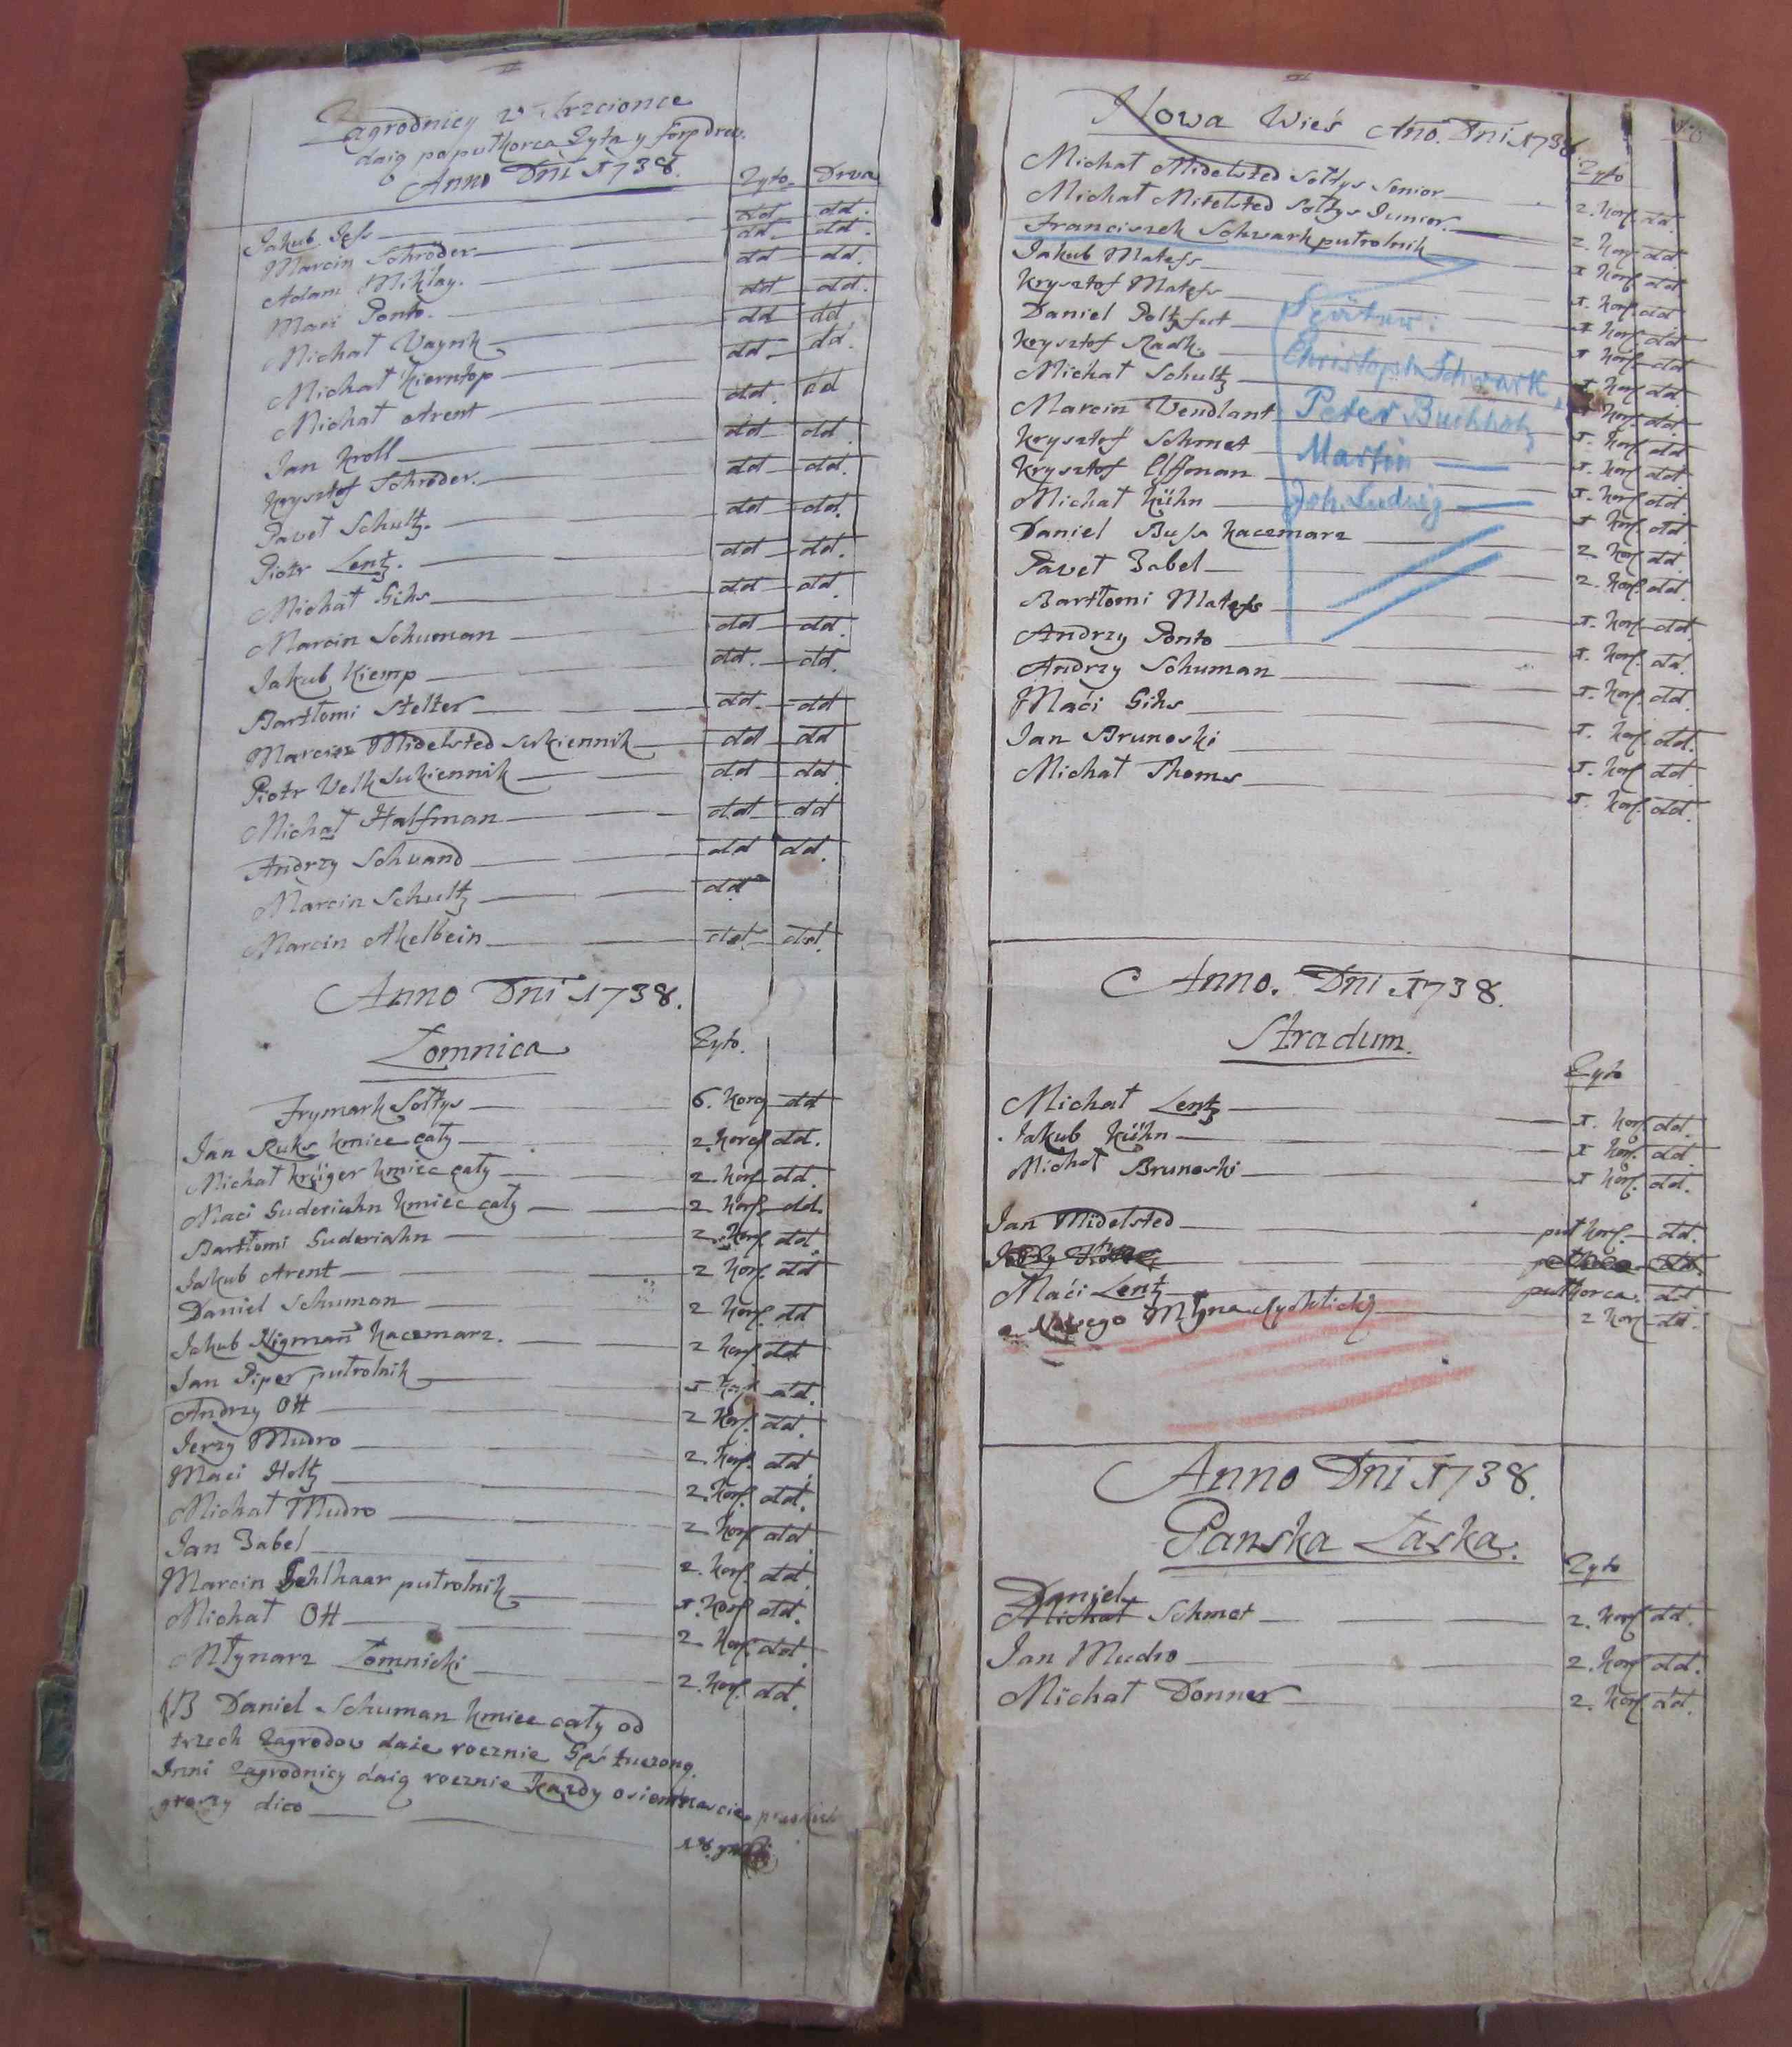 Zagrodnicy w Trzcionce
daią po pułkorca Zyta y forę drew.
Anno Dni 1738.
Zyto. Drva
Jakub Jess dd dd.
Marcin Schröder dd dd.
Adam Miklay. dd dd.
Maci Ponto. dd dd.
Michał Vaynk dd dd
Michał Kierntop dd dd.
Michał Arent dd. dd
Jan Kroll dd dd.
Krysztof Schröder. dd dd.
Paveł Schultz. dd dd.
Piotr Lentz. dd dd.
Michał Giks dd dd.
Marcin Schuman dd dd.
Jakub Kiemp dd. dd.
Bartłomi Stelter dd. dd
Marcin Midelsted Sukiennik dd dd
Piotr Velk Sukiennik dd dd
Michał Halfman dd dd
Andrzy Schvand dd dd.
Marcin Schultz dd
Marcin Akelbein dd. dd.
Anno Dni 1738.
Łomnica Zyto.
Frymark Sołtys 6. Korcy dd
Jan Ruks kmiec cały 2. Korcy dd.
Michał Krüger kmiec cały 2. Korc. dd.
Maci Guderiahn kmiec cały 2 Korc. dd.
Bartłomi Guderiahn 2. Korc. dd
Jakub Arent 2 Korc. dd
Daniel Schuman 2 Korc. dd
Jakub Nigman Kaczmarz. 2 Korc. dd
Jan Piper pułrolnik 1 Korc. dd.
Andrzy Ott 2 Korc. dd.
Jerzy Mudro 2. Korc. dd
Maci Holtz 2. Korc. dd.
Michał Mudro 2 Korc. dd
Jan Zabel 2. Korc. dd
Marcin Fehlhaar pułrolnik 1. Korc. dd.
Michał Ott 2 Korc. dd
Młynarz Łomnicki 2. Korc. dd.
NB Daniel Schuman kmiec cały od
trzech Zagrodow daie rocznie Gęś tuczoną.
Inni Zagrodnicy daią rocznie kazdy osiemnascie pruskich
groszy dico 18.
Nowa Wieś Ano. Dni 1738.
Zyto
Michał Midelsted Sołtys Senior 2. Korc. dd.
Michał Mitelsted Sołtys Junior. 2. Korc. dd.
Franciszek Schvark pułrolnik 1 Korc. dd
Jakub Matefs 1. Korc. dd
Krysztof Matefs 1 Korc. dd
Daniel Poltzfut 1 Korc. dd
Krysztof Radk. 1 Korc. dd
Michał Schultz 1 Korc. dd.
Marcin Vendlant 1. Korc. dd
Krysztof Schmet 1. Korc. dd.
Krysztof Elffman 1. Korc. dd.
Michał Kühn 1 Korc. dd.
Daniel Bufs Kaczmarz 2 Korc. dd.
Paveł Zabel 2. Korc. dd.
Bartłomi Matefs 1. Korc. dd
Andrzy Ponto 1. Korc. dd.
Andrzy Schuman 1. Korc. dd.
Maći Giks 1. Korc. dd.
Jan Brunoski 1. Korc. dd
Michał Thoms 1. Korc. dd.
Später:
Christoph Schwark
Peter Buchholz
Martin —
Joh. Ludwig —
Anno. Dni 1738.
Stradum.
Zyto
Michał Lentz 1. Korc. dd.
Jakub Kühn 1 Korc. dd
Michał Brunoski 1 Korc. dd.
Jan Midelsted puł Korc. dd.
Maći Lentz pułkorca. dd
z Nowego Młyna 2 Korc. dd.
Anno Dni 1738.
Panska Łaska.
Zyto
Daniel
Michał Schmet 2. Korc. dd.
Jan Mudro 2. Korc. dd.
Michał Donner 2. Korc. dd.